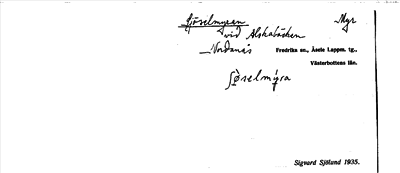 Fjöselmyran Myr
vid Alskabäcken
Nordanås Fredrika sn., Åsele Lappm. tg.,
Västerbottens län.
Sigvard Sjölund 1935.